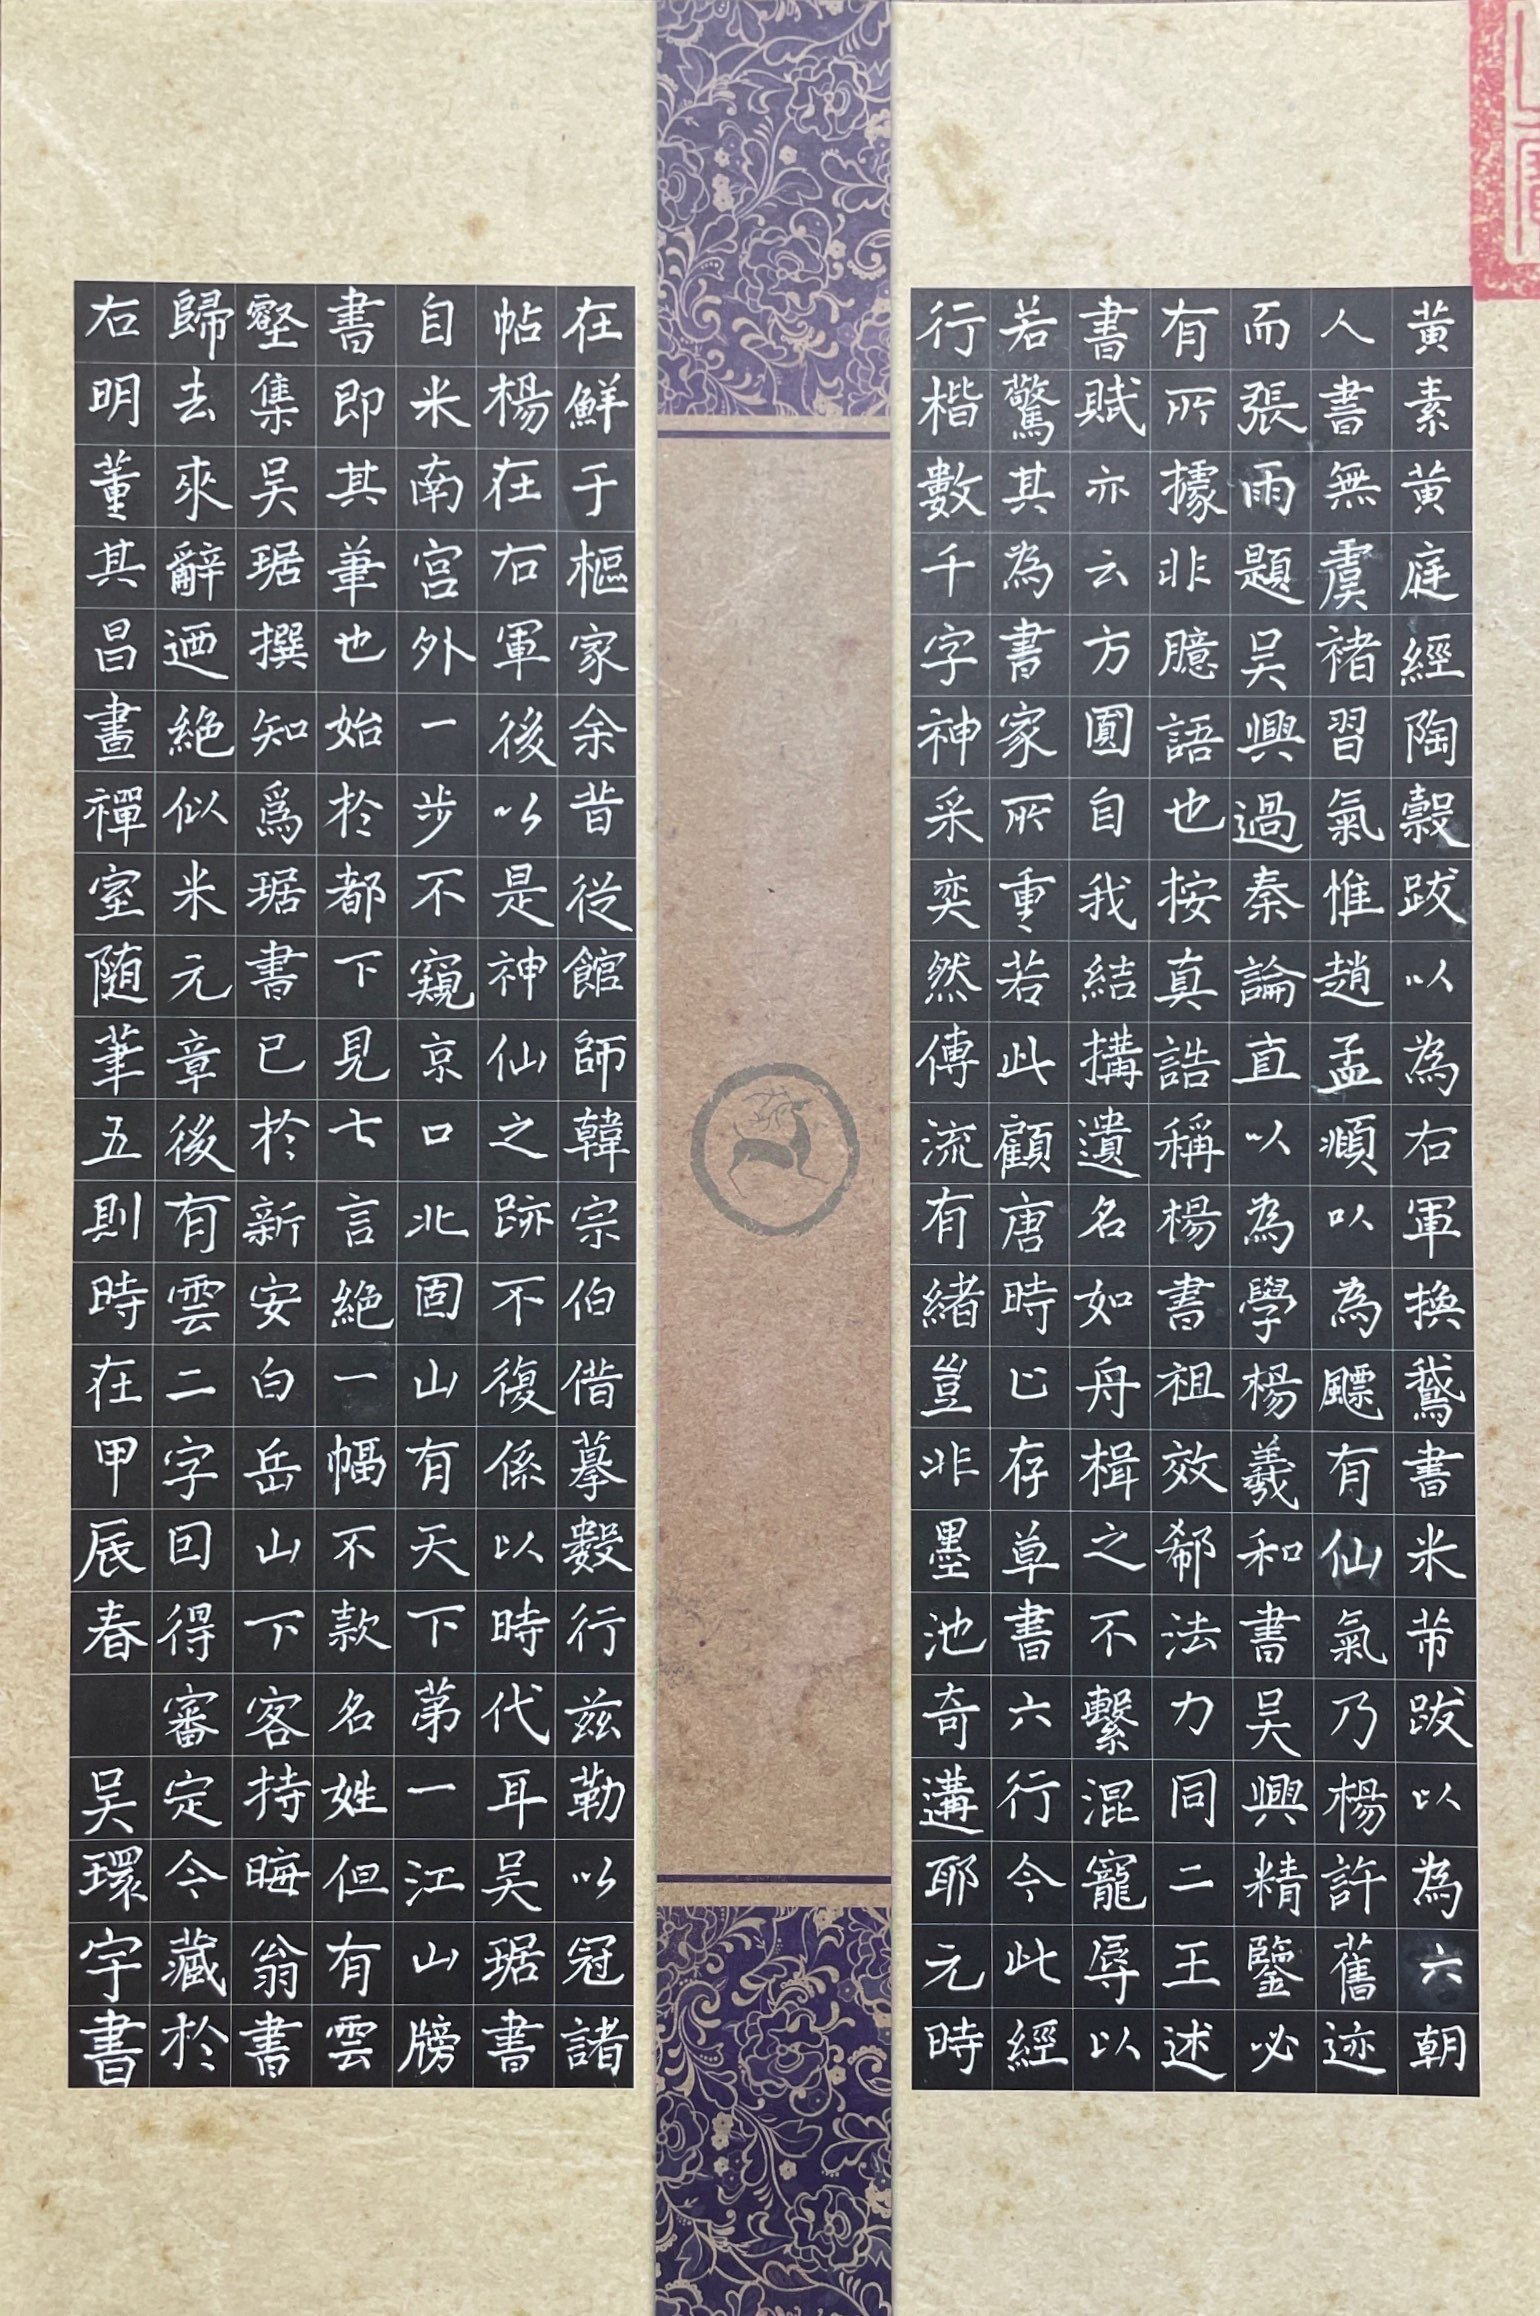 黄素黄庭經陶穀跋以為右軍換鵞書米芾跋以為六朝
人書無虞褚習氣惟趙孟頫以為飃有仙氣乃楊許舊迹
而張雨題吴興過秦論直以為學楊羲和書吴興精鑒必
有所據非臆語也按真誥稱楊書祖效郗法力同二王述
書賦亦云方圓自我結搆遺名如舟楫之不繫混寵辱以
若驚其為書家所重若此顧唐時止存草書六行今此經
行楷數千字神采奕然傳流有緒豈非墨池奇遘耶元時
在鮮于樞家余昔從館師韓宗伯借摹數行兹勒以冠諸
帖楊在右軍後以是神仙之跡不復係以時代耳吴琚書
自米南宫外一步不窺京口北固山有天下第一江山牓
書即其筆也始於都下見七言絶一幅不款名姓但有雲
壑集吴琚撰知爲琚書已於新安白岳山下客持晦翁書
歸去來辭迺絶似米元章後有雲二字回得審定今藏於
右明董其昌畫禪室随筆五則時在甲辰春 吴環宇書